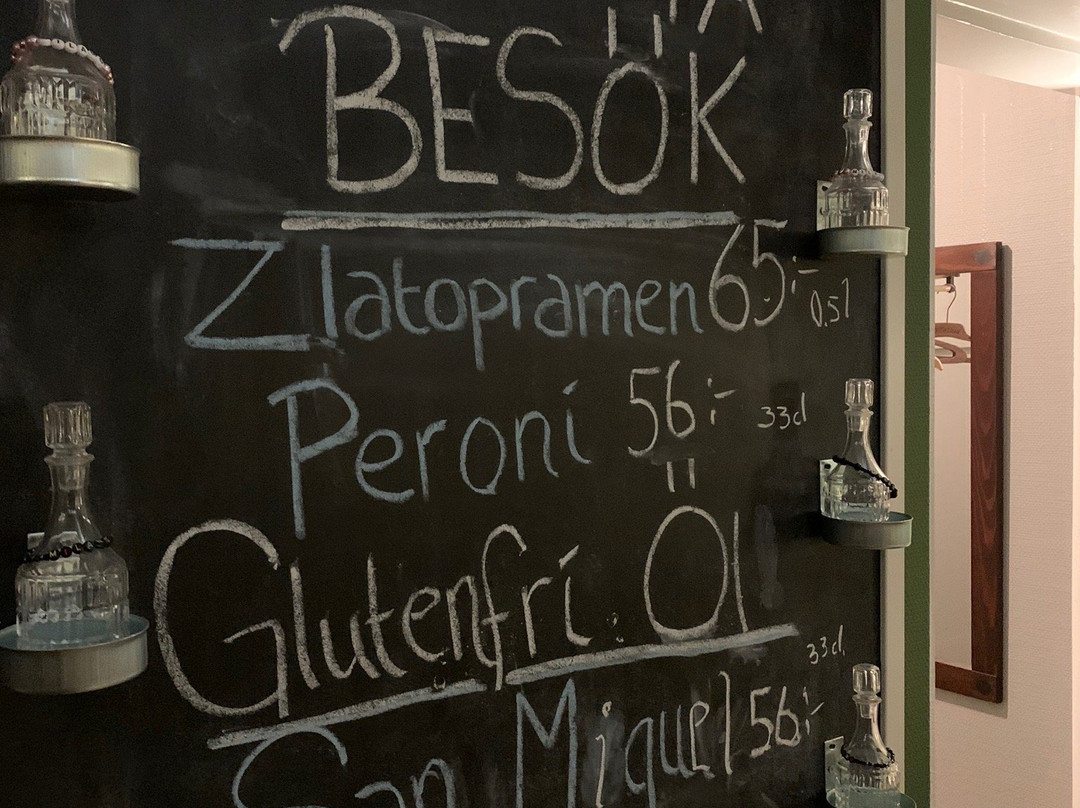 BESÖK
Zlatopramen 65:- 0.5l
Peroni 56:- 33cl
Glutenfri Öl
San Miguel 56:- 33cl